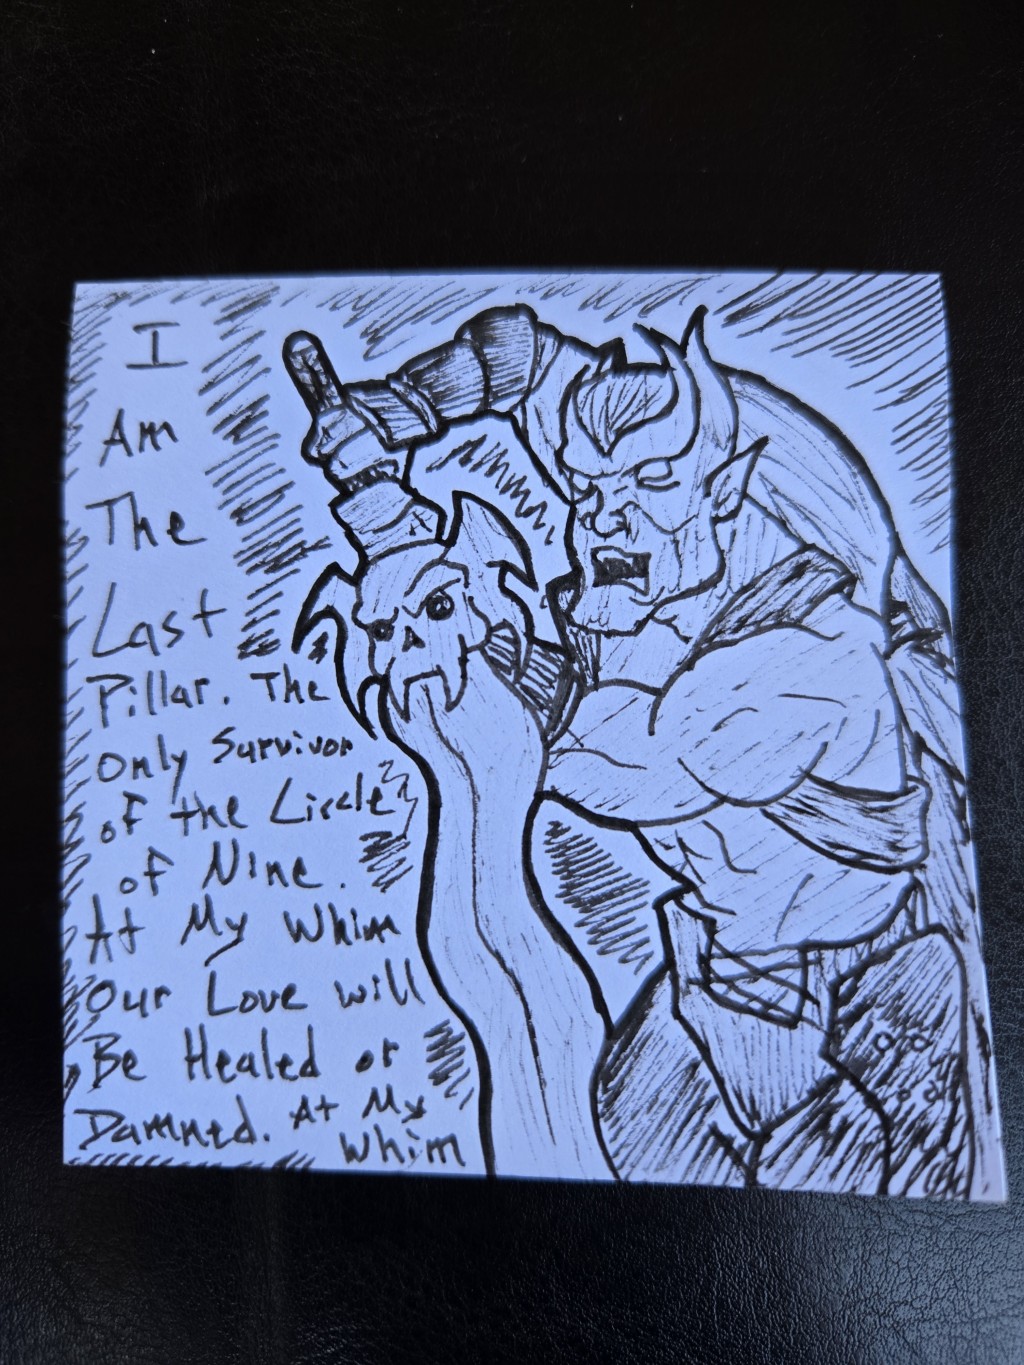 I
Am
The
Last
Pillar. The
Only Survivor
of the Circle
of Nine.
At My Whim
Our Love will
Be Healed or
Damned. At My
Whim